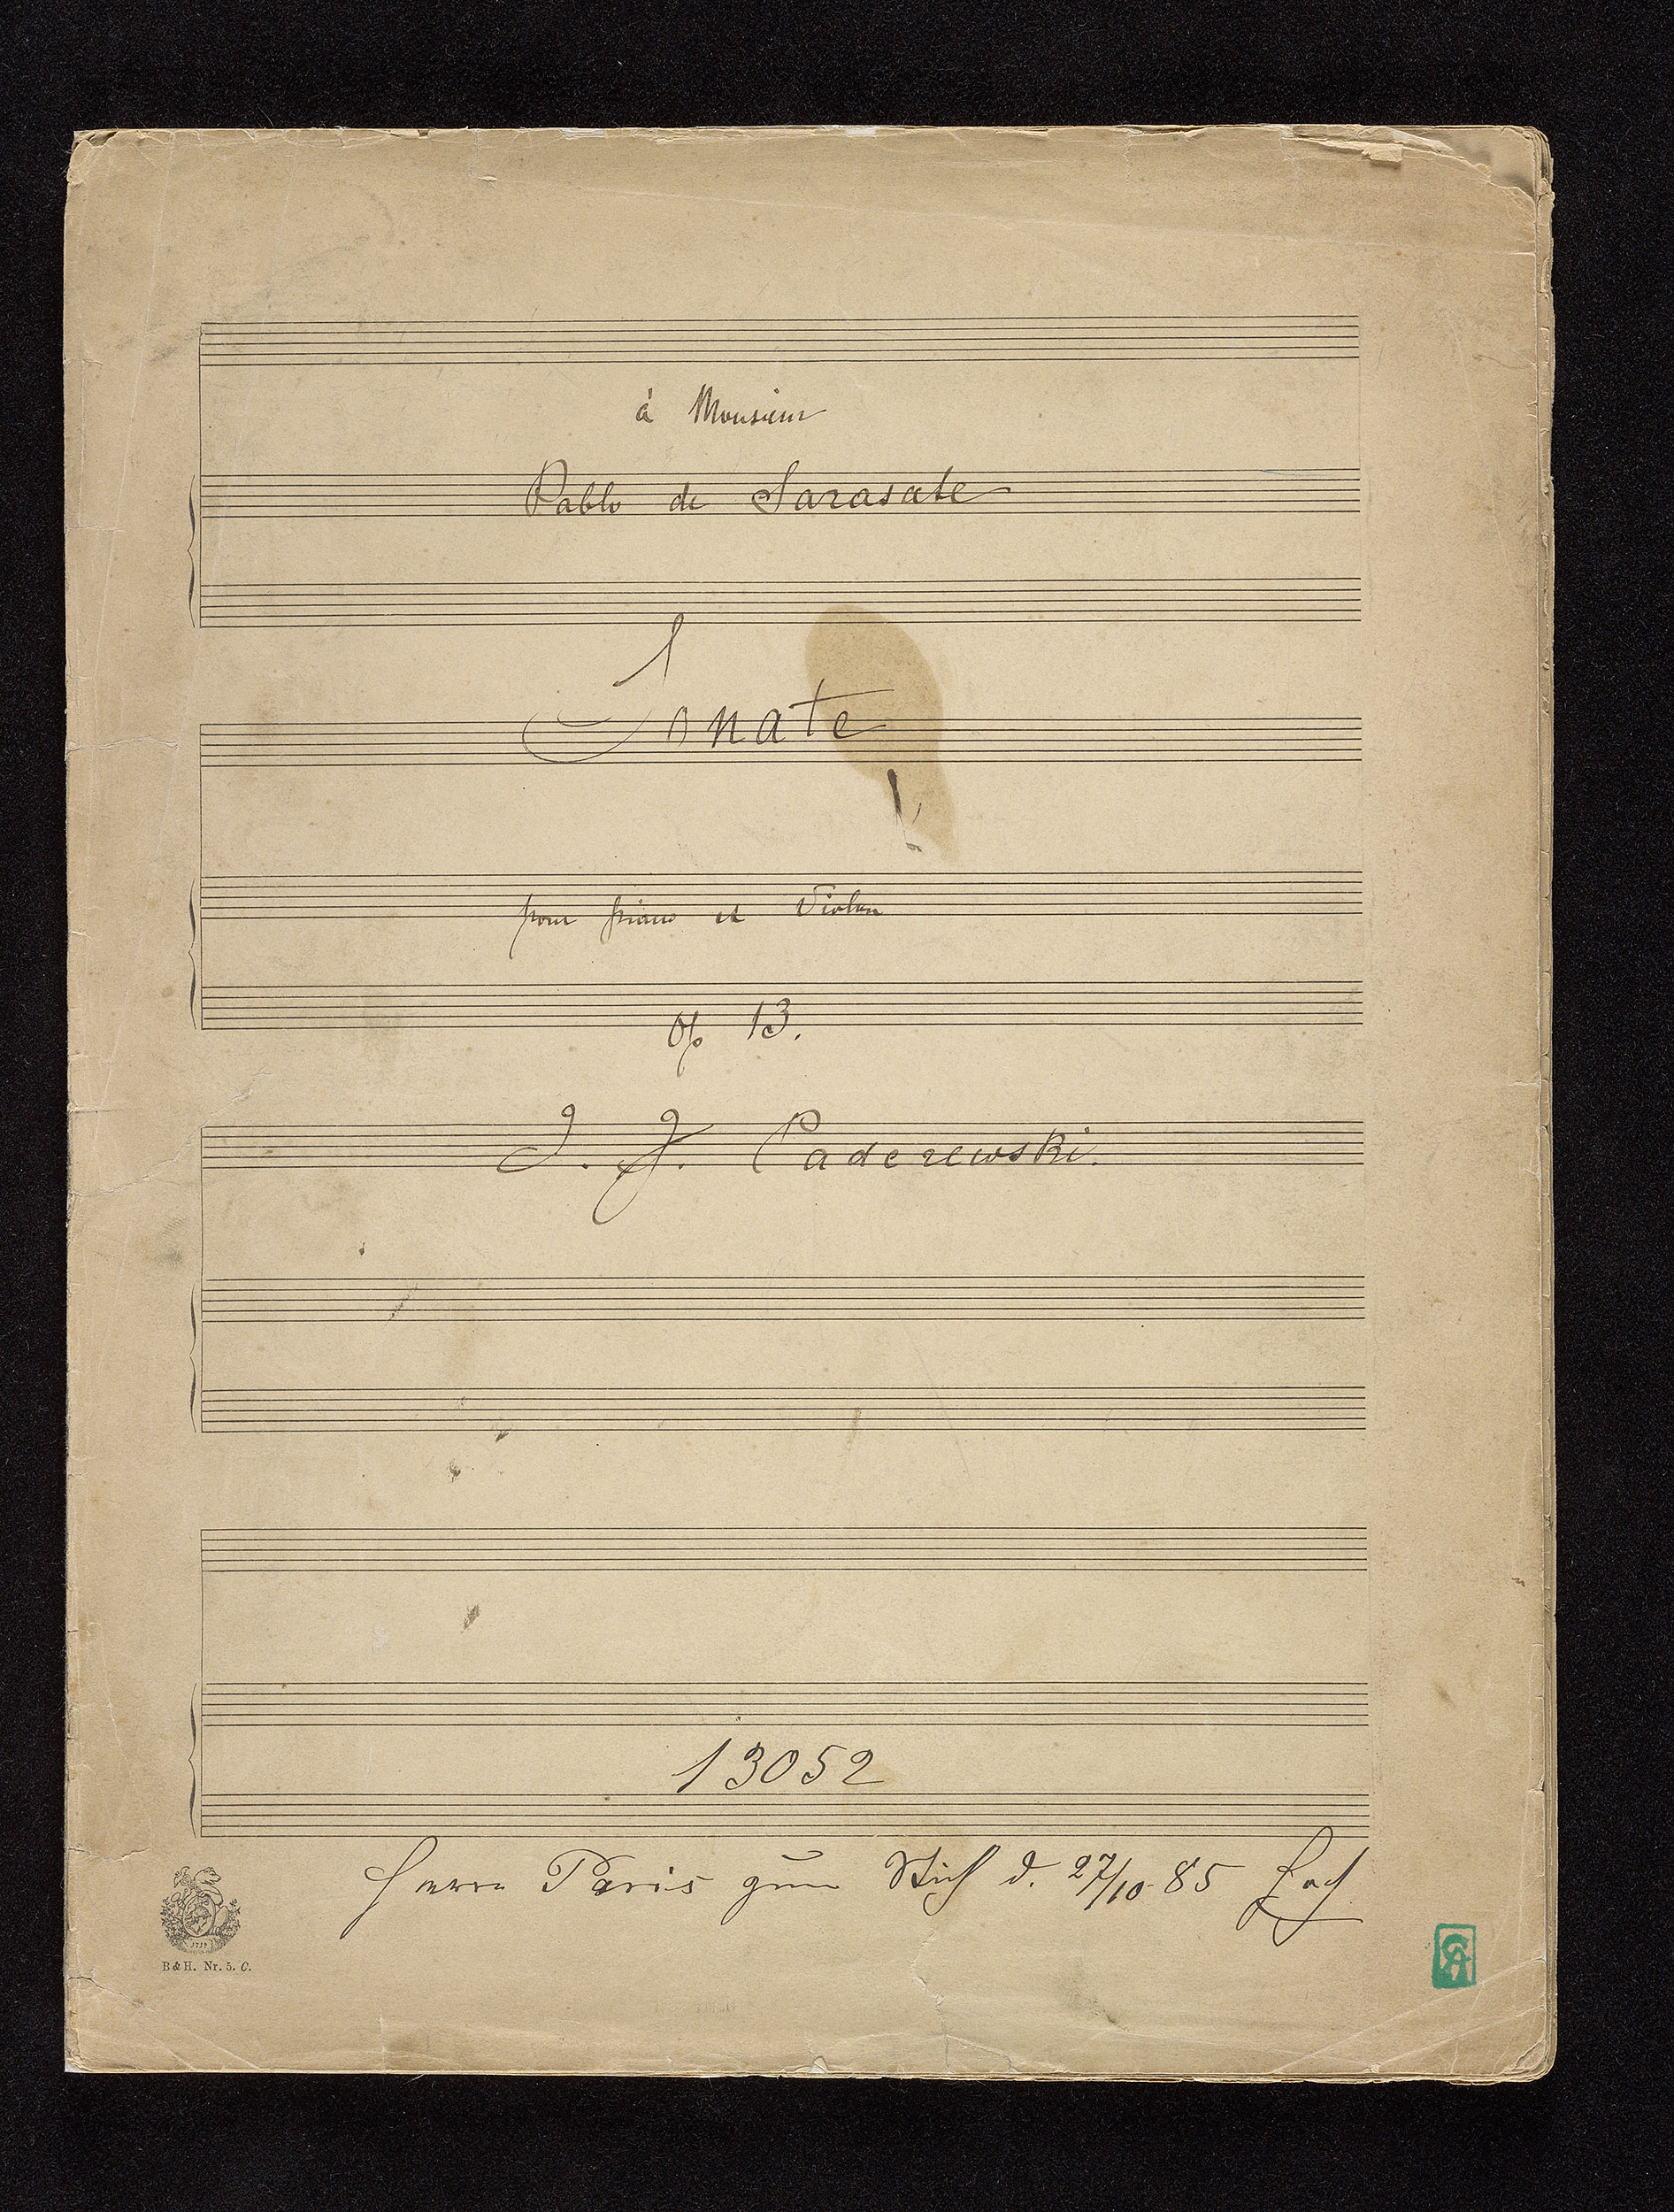 à Monsieur
Pablo de Sarasate
Sonate
pour piano et Violon
Op 13.
I. J. Paderewski.
13052
Herrn Paris zum Stich d. 27/10. 85
1719
B & H. Nr. 5. C.